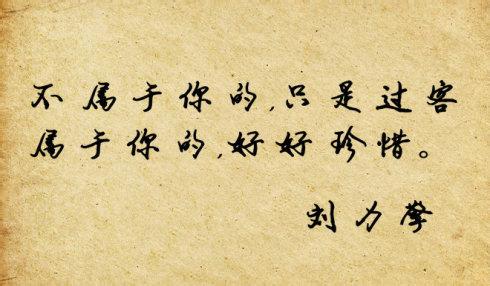 不属于你的,只是过客
属于你的,好好珍惜。
刘力擎